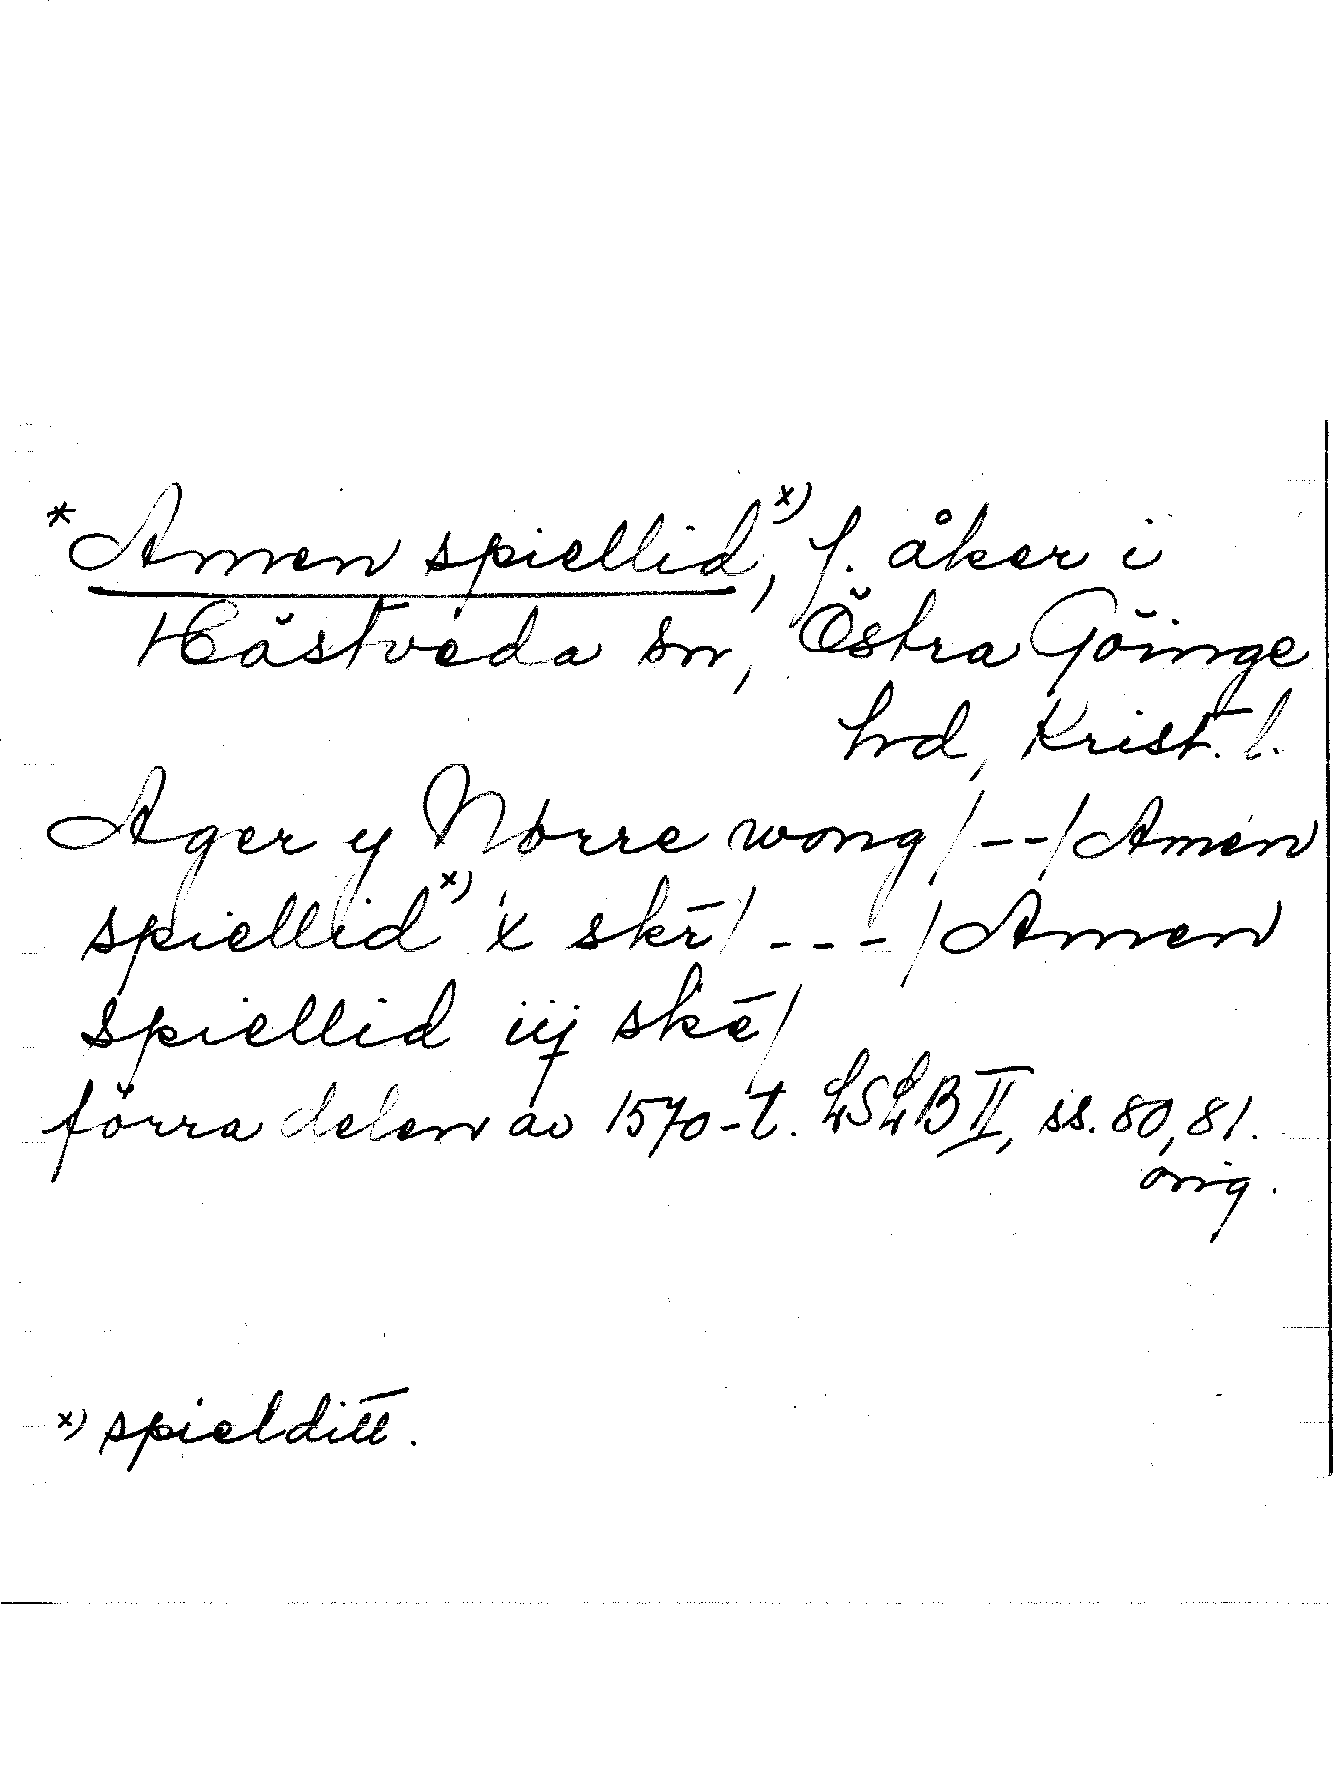 *Amen spiellid, x) f. åker i
Hästveda sn, Östra Göinge
hrd, Krist. l.
Ager y Nörre wong/--/Amen
spiellid x) x skr̄/---/Amen
spiellid iij skē/
förra delen av 1570-t. LSLB II, ss. 80, 81.
orig.
x) spielditt.